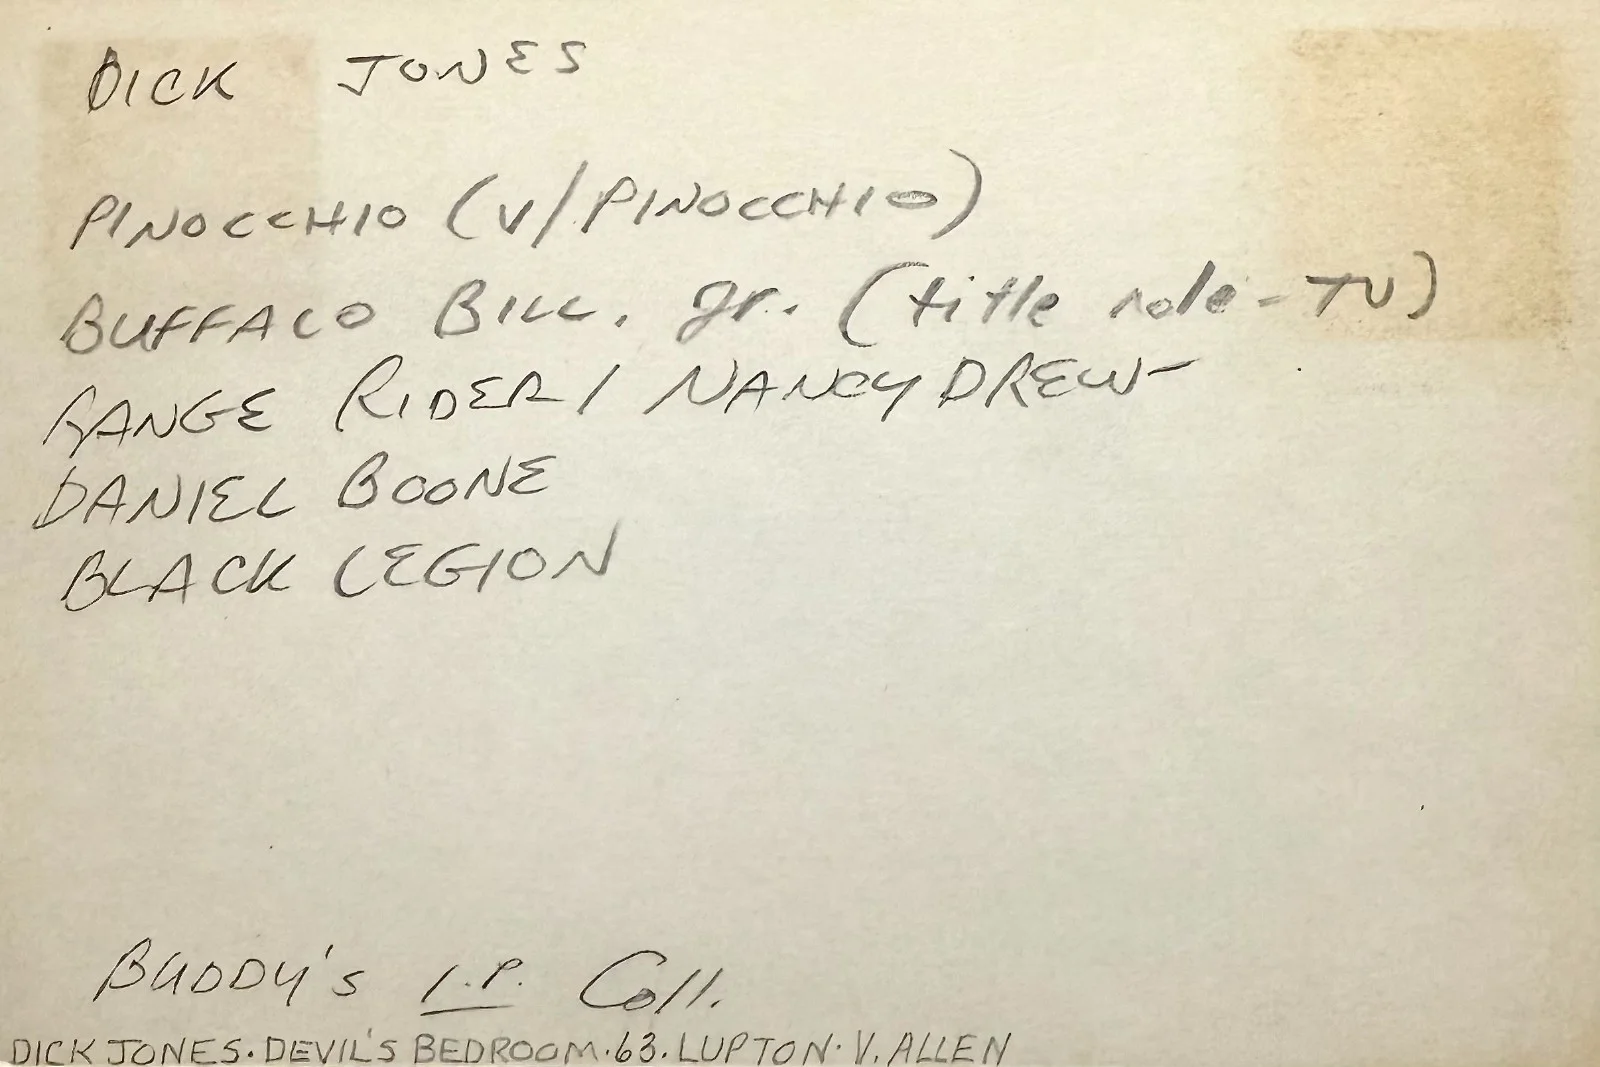 DICK JONES
PINOCCHIO (V/PINOCCHIO)
BUFFALO BILL, Jr. (title role - TV)
RANGE RIDER / NANCY DREW -
DANIEL BOONE
BLACK LEGION
BUDDY'S I.P. Coll.
DICK JONES. DEVIL'S BEDROOM. 63. LUPTON. V. ALLEN